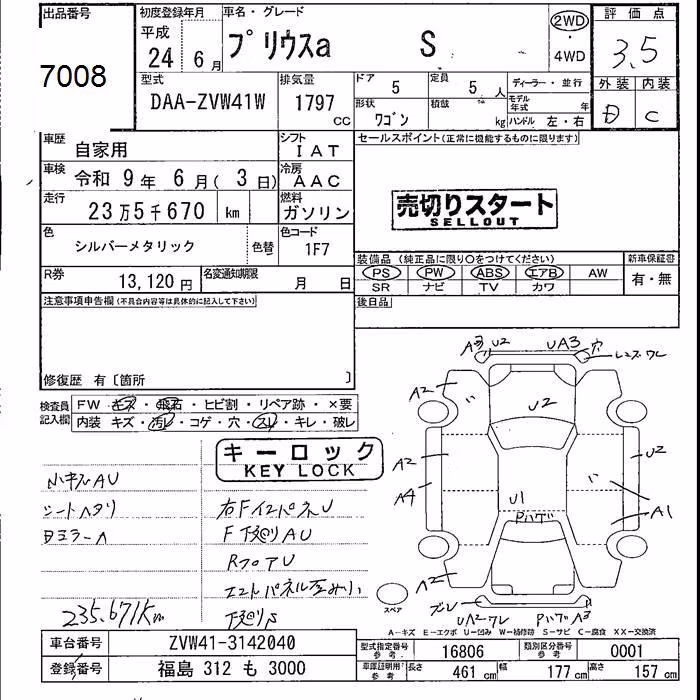 出品番号
7008
初度登録年月
平成
24 6月
車名・グレード
プリウスa S
2WD
・
4WD
評価点
3.5
外装 内装
D C
型式
DAA-ZVW41W
排気量
1797
cc
ドア
5
定員
5 人
形状
ワゴン
積載
kg
ディーラー・並行
モデル年式 年
ハンドル 左・右
車歴
自家用
シフト
IAT
車検
令和 9年 6月(3日)
冷房
AAC
走行
23万5千670 km
燃料
ガソリン
色
シルバーメタリック
色替
色コード
1F7
R券
13,120円
名変通知期限
月 日
セールスポイント(正常に機能するものに限ります)
売切りスタート
SELLOUT
装備品 (純正品に限り○をつけてください)
PS PW ABS エアB AW
SR ナビ TV カワ
新車保証書
有・無
後日品
注意事項申告欄(不具合内容等は具体的に記入して下さい)
修復歴 有〔箇所 〕
検査員
記入欄
FW キズ・飛石・ヒビ割・リペア跡・×要
内装 キズ・汚レ・コゲ・穴・スレ・キレ・破レ
キーロック
KEY LOCK
小キズAU
シートヘタリ
235.671Km
右FインパネU
F下廻りAU
RフロアU
下廻りS
U2
UA3
穴
レンズワレ
A2
U2
A2
A4
U2
U1
Pハゲ
A1
A2
スペア
UA2ワレ
PハゲA3
A-キズ E-エクボ U-凹み W-補修跡 S-サビ C-腐食 XX-交換済
車台番号
ZVW41-3142040
登録番号
福島 312 も 3000
型式指定番号
参考
16806
類別区分番号
参考
0001
車庫証明用
参考
長さ 461 cm 幅 177 cm 高さ 157 cm